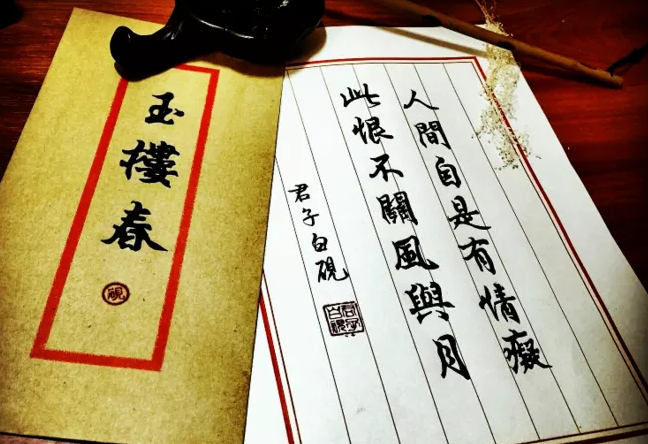 人間自是有情癡
此恨不關風與月
君子白硯
君子白硯
玉樓春
硯